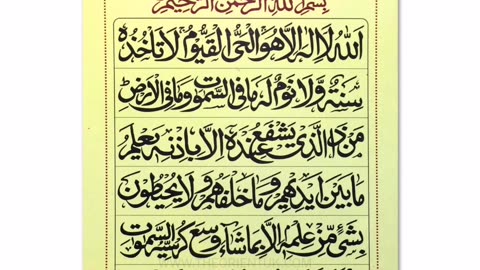 بسم الله الرحمن الرحيم
الله لا اله الا هو الحي القيوم لا تاخذه
سنة ولا نوم له ما في السموت وما في الارض
من ذا الذي يشفع عنده الا باذنه يعلم
ما بين ايديهم وما خلفهم ولا يحيطون
بشئ من علمه الا بما شاء وسع كرسيه السموت
WWW.THEORIENTUK.COM